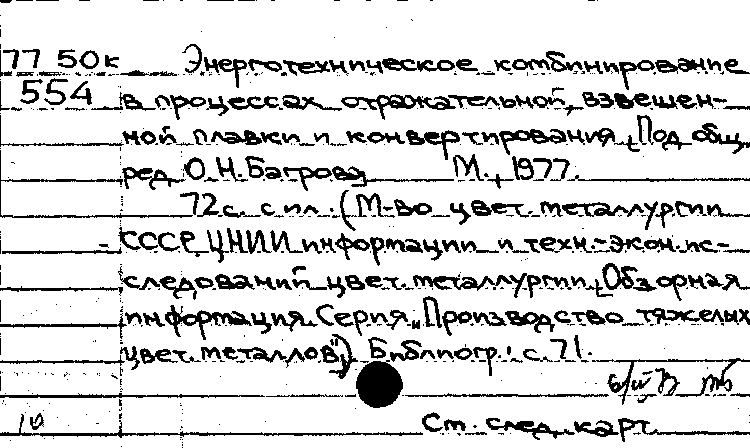 77 50к Энерготехническое комбинирование
554 в процессах отражательной, взвешен-
ной плавки и конвертирования [Под общ.
ред. О.Н. Багрова] М., 1977.
72с. с ил. (М-во цвет. металлургии
СССР, ЦНИИ информации и техн.-экон. ис-
следований цвет. металлургии. Обзорная
информация. Серия „Производство тяжелых
цвет. металлов"). Библиогр.: с. 71.
См. след. карт.